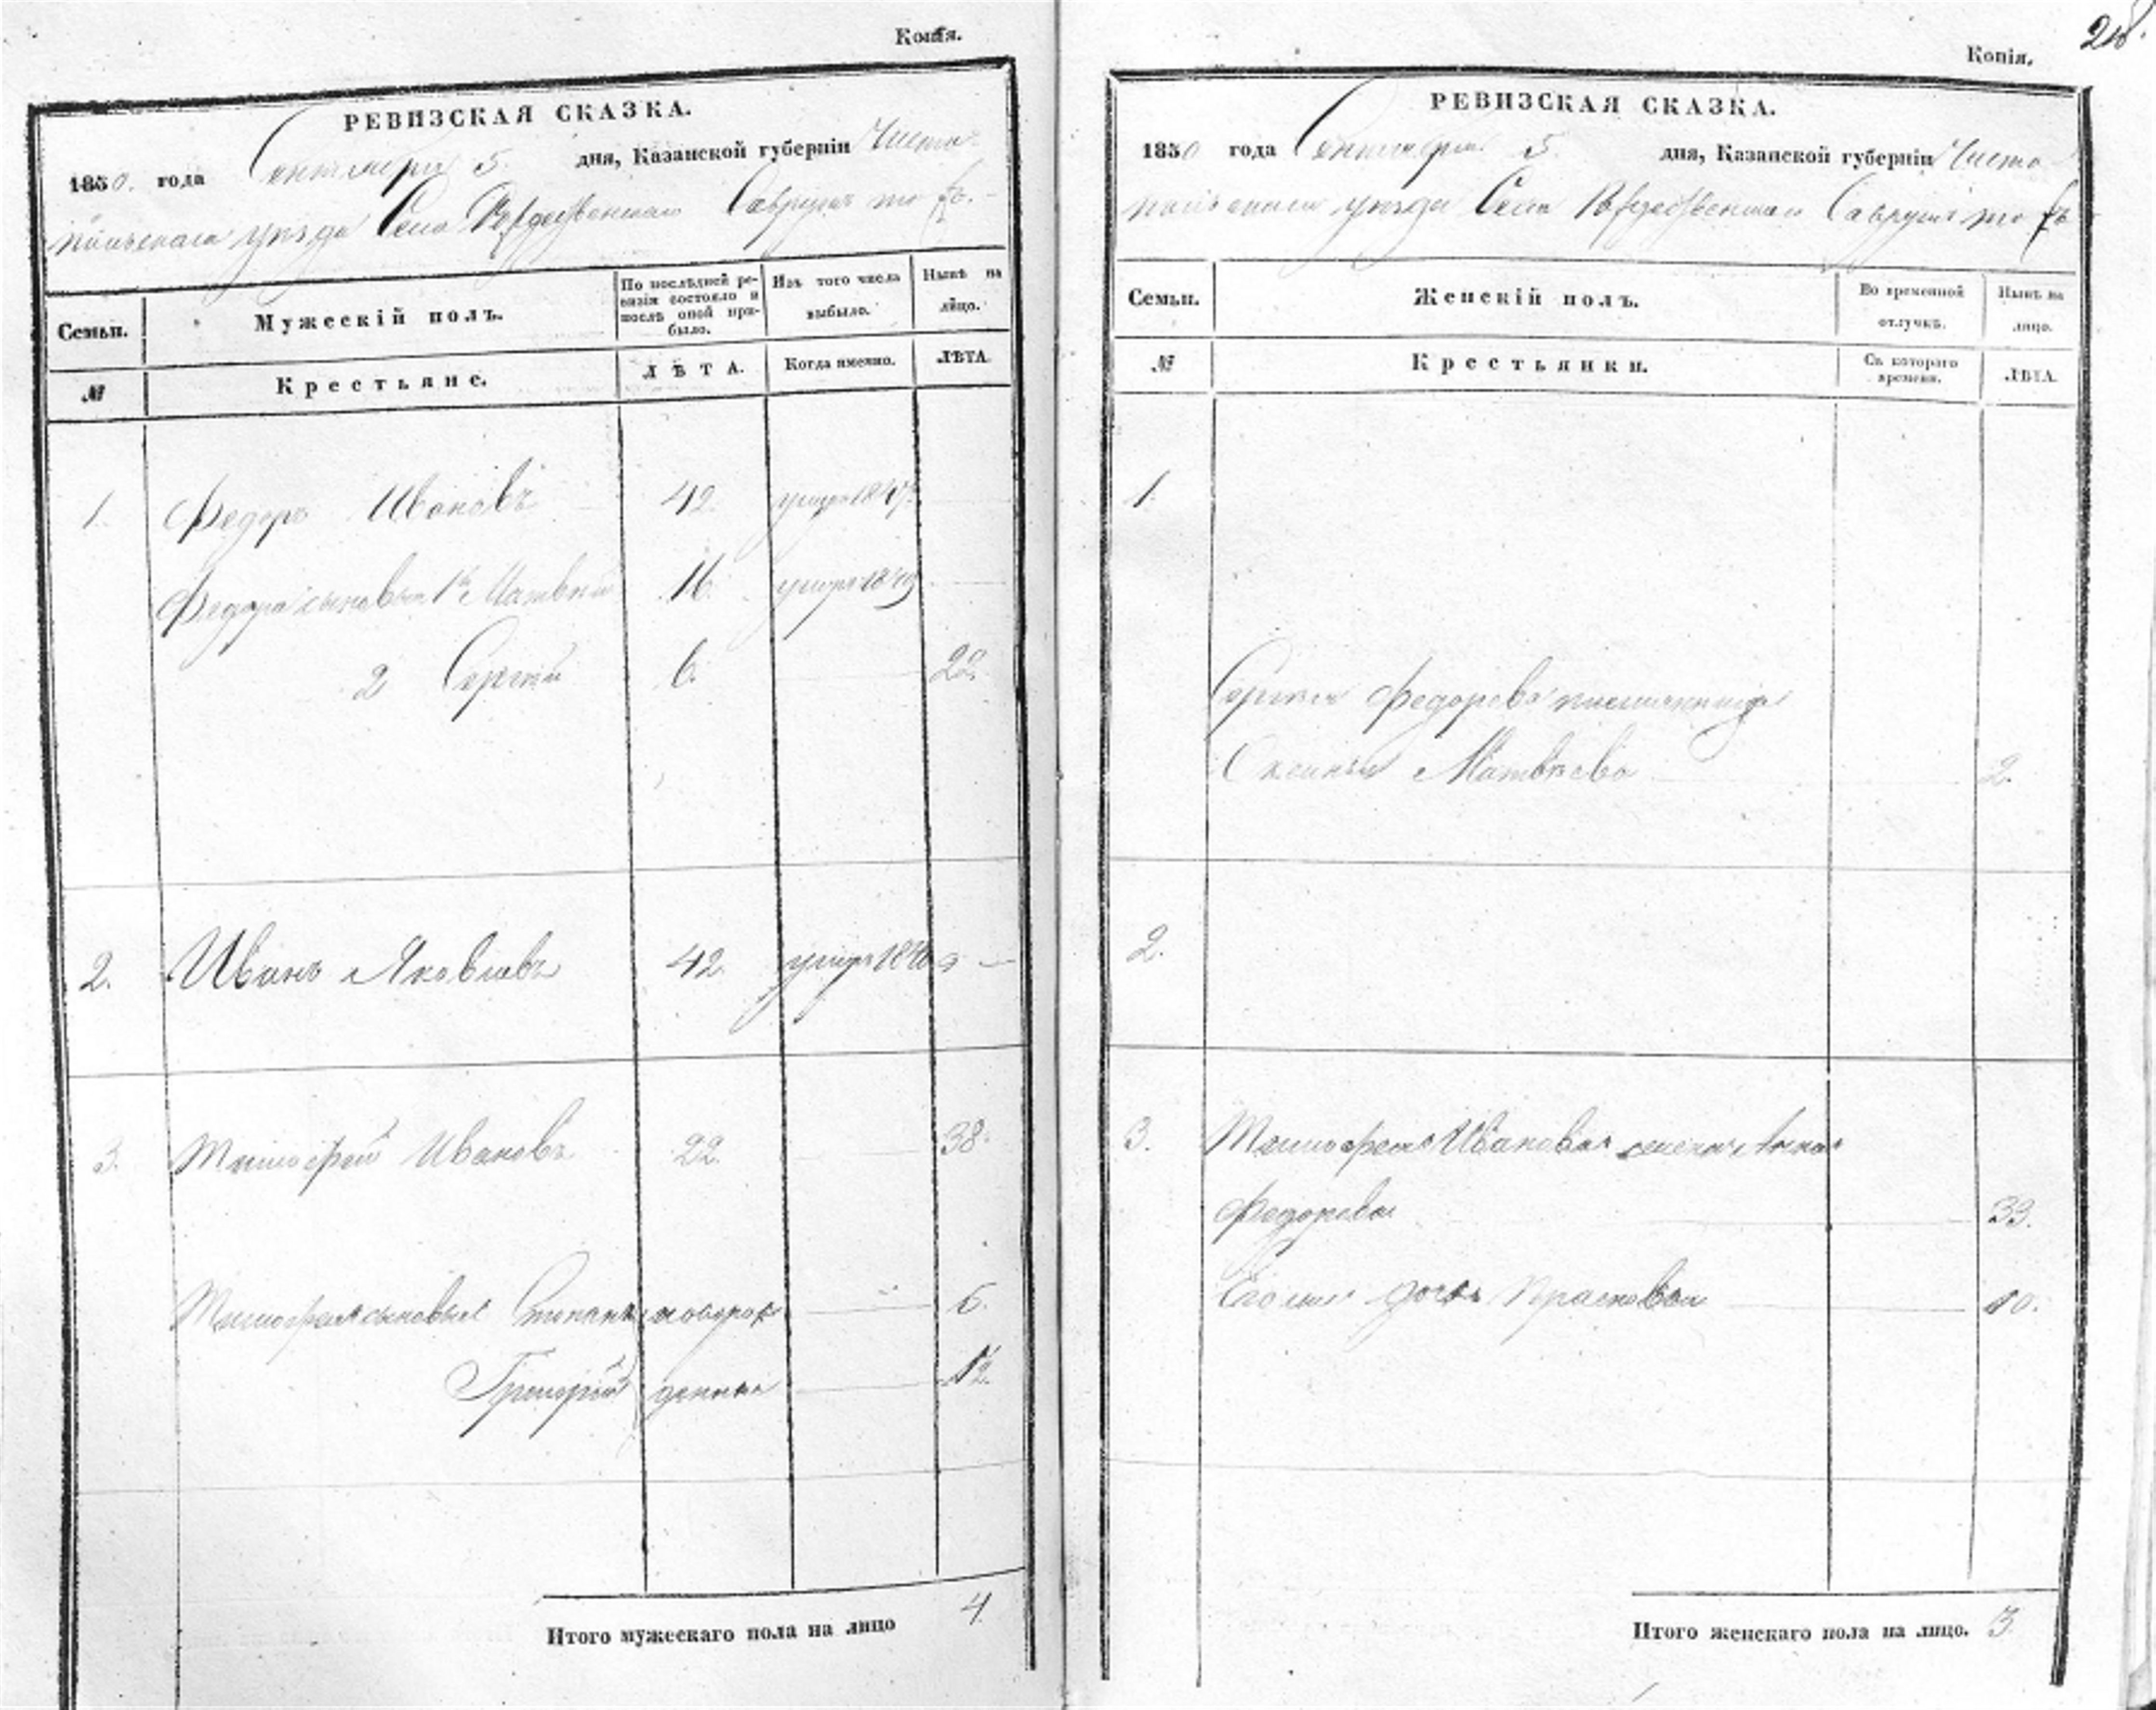 Копія.
РЕВИЗСКАЯ СКАЗКА.
1850. года Сентября 5. дня, Казанской губерніи Чисто-
польскаго уѣзда Села Рождественскаго
Семьи. Мужескій полъ. По послѣдней ре-визіи состояло и послѣ оной при-было. Изъ того числа выбыло. Нынѣ на лицо.
№ Крестьяне. ЛѢТА. Когда именно. ЛѢТА.
1. Федоръ Ивановъ 42. умеръ 1847.
Федора сыновья 1й Матвѣй 16. умеръ
2 Сергѣй 6. 22.
2. Иванъ Яковлевъ 42. умеръ
3. Тимофей Ивановъ 22. 38.
Тимофея сыновья Степанъ новорож 6.
Григорій денные 12.
Итого мужескаго пола на лицо 4.
Копія.
РЕВИЗСКАЯ СКАЗКА.
1850 года Сентября 5. дня, Казанской губерніи Чисто-
польскаго уѣзда Села Рождественскаго
Семьи. Женскій полъ. Во временной отлучкѣ. Нынѣ на лицо.
№ Крестьянки. Съ котораго времени. ЛѢТА.
1.
Сергѣя Федорова племянница
Оксинья Матвѣева 2.
2.
3. Тимофея Иванова жена Анна
Федорова 33.
дочь Прасковья 10.
Итого женскаго пола на лицо. 3